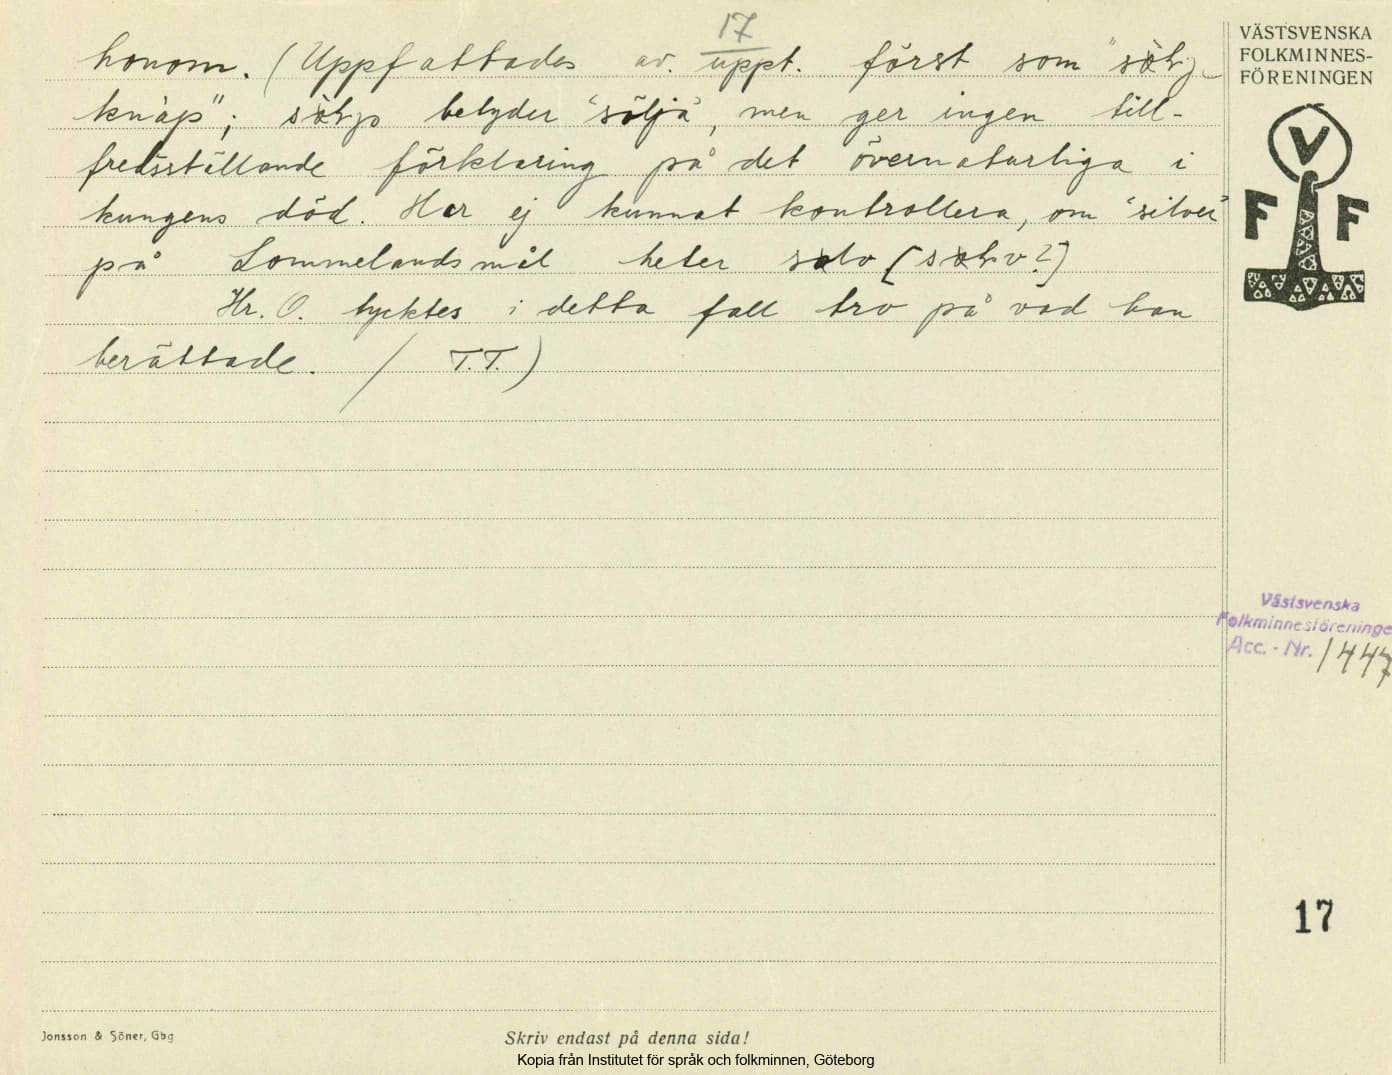 17
honom. (Uppfattades av. uppt. först som "
knäp"; betyder "sölja", men ger ingen till-
fredsställande förklaring på det övernaturliga i
kungens död. Har ej kunnat kontrollera, om "silver"
på Lommelandsmål heter [
Hr. O. tycktes i detta fall tro på vad han
berättade. / T.T.)
VÄSTSVENSKA
FOLKMINNES-
FÖRENINGEN
V
F F
Västsvenska
Folkminnesföreninge
Acc. - Nr. 1447
17
Jonsson & Söner, Gbg
Skriv endast på denna sida!
Kopia från Institutet för språk och folkminnen, Göteborg